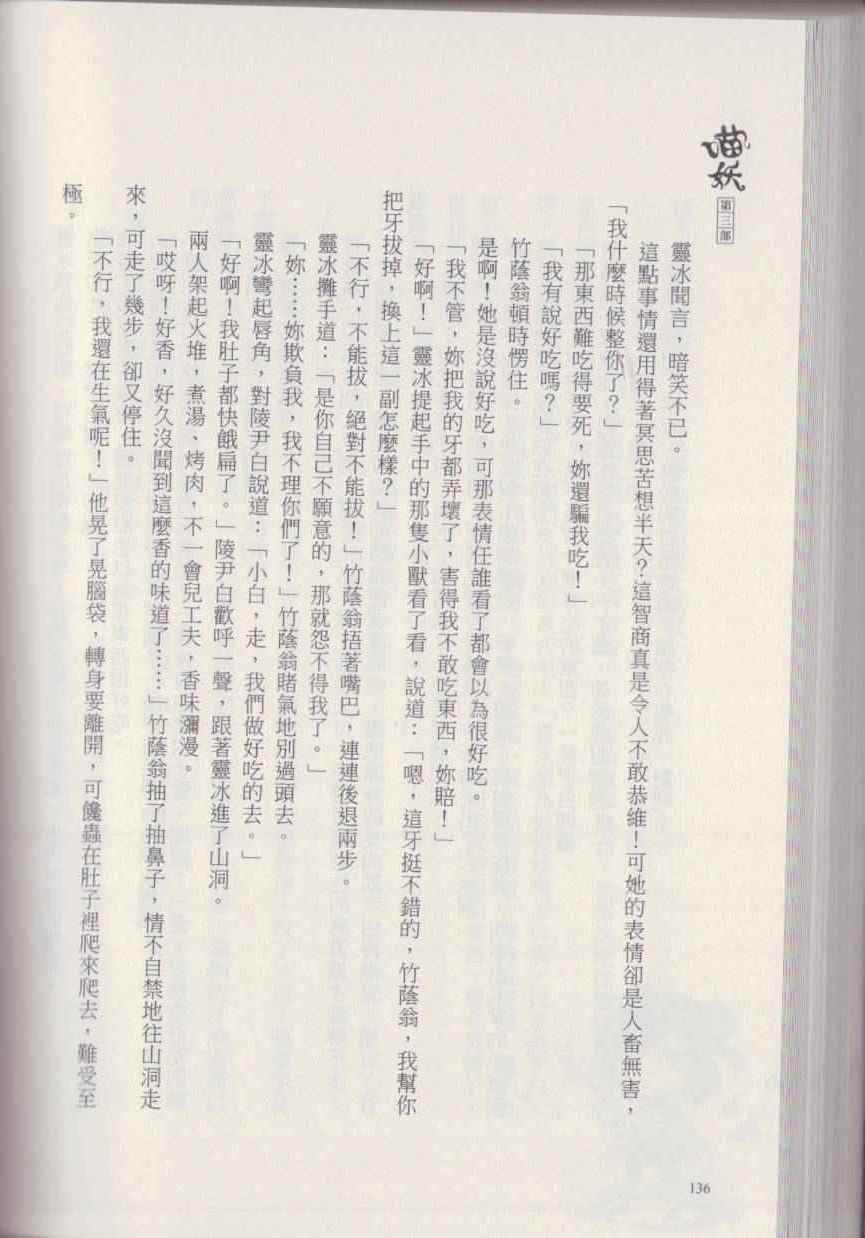 喵妖
第三部
靈冰聞言，暗笑不已。
這點事情還用得著冥思苦想半天？這智商真是令人不敢恭維！可她的表情卻是人畜無害，
「我什麼時候整你了？」
「那東西難吃得要死，妳還騙我吃！」
「我有說好吃嗎？」
竹蔭翁頓時愣住。
是啊！她是沒說好吃，可那表情任誰看了都會以為很好吃。
「我不管，妳把我的牙都弄壞了，害得我不敢吃東西，妳賠！」
「好啊！」靈冰提起手中的那隻小獸看了看，說道：「嗯，這牙挺不錯的，竹蔭翁，我幫你
把牙拔掉，換上這一副怎麼樣？」
「不行，不能拔，絕對不能拔！」竹蔭翁捂著嘴巴，連連後退兩步。
靈冰攤手道：「是你自己不願意的，那就怨不得我了。」
「妳……妳欺負我，我不理你們了！」竹蔭翁賭氣地別過頭去。
靈冰彎起唇角，對陵尹白說道：「小白，走，我們做好吃的去。」
「好啊！我肚子都快餓扁了。」陵尹白歡呼一聲，跟著靈冰進了山洞。
兩人架起火堆，煮湯、烤肉，不一會兒工夫，香味瀰漫。
「哎呀！好香，好久沒聞到這麼香的味道了……」竹蔭翁抽了抽鼻子，情不自禁地往山洞走
來，可走了幾步，卻又停住。
「不行，我還在生氣呢！」他晃了晃腦袋，轉身要離開，可饞蟲在肚子裡爬來爬去，難受至
極。
136